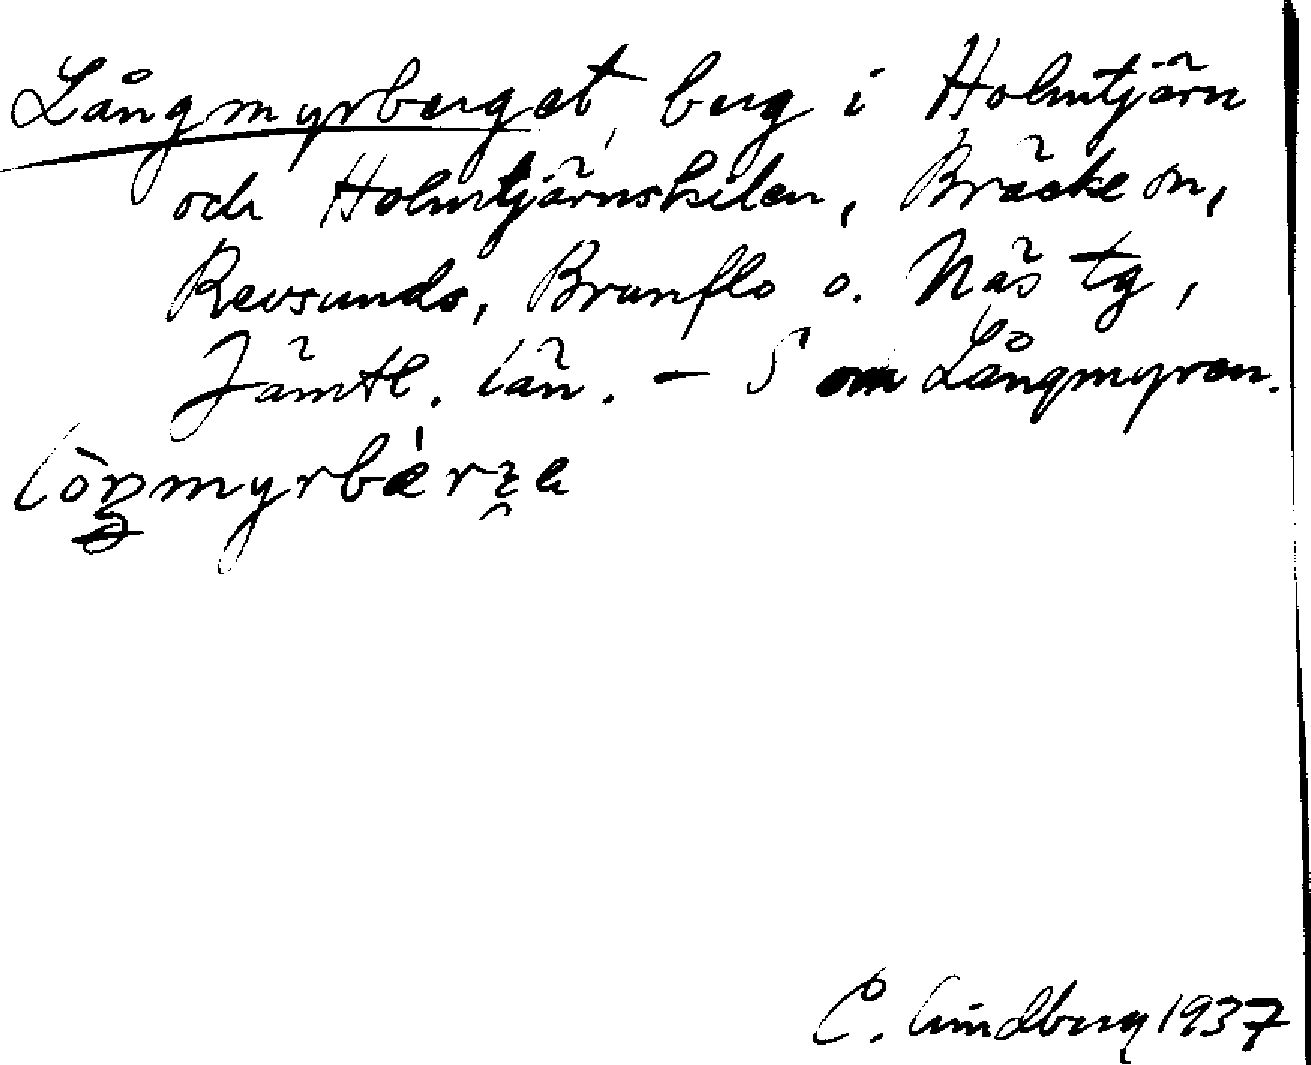 Långmyrberget, berg i Holmtjärn
och Holmtjärnskilen, Bräcke sn,
Revsunds, Brunflo o. Näs tg,
Jämtl. län. – S om Långmyren.
C. Lindberg 1937